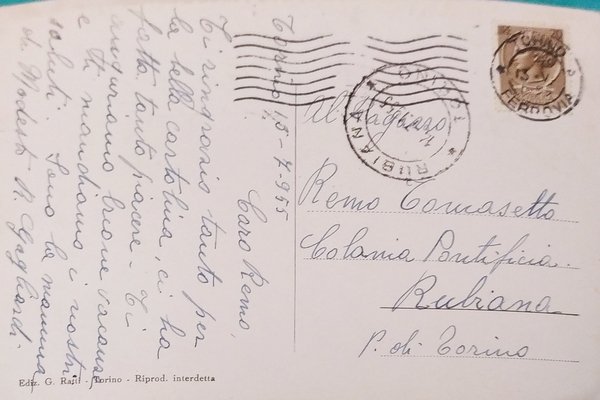 Torino 15-7-955
Caro Remo,
Ti ringrazio tanto per
la bella cartolina, ci ha
fatto tanto piacere. Ti
auguriamo buone vacanze
e ti mandiamo i nostri
saluti. Sono la mamma
di Modesti R. Gagliardi
Al Ragazzo
Remo Tomasetto
Colonia Pontificia
Rubiana
P. di Torino
TORINO
FERROVIA
TORINO
RUBIANA
Ediz. G. Ratti - Torino - Riprod. interdetta